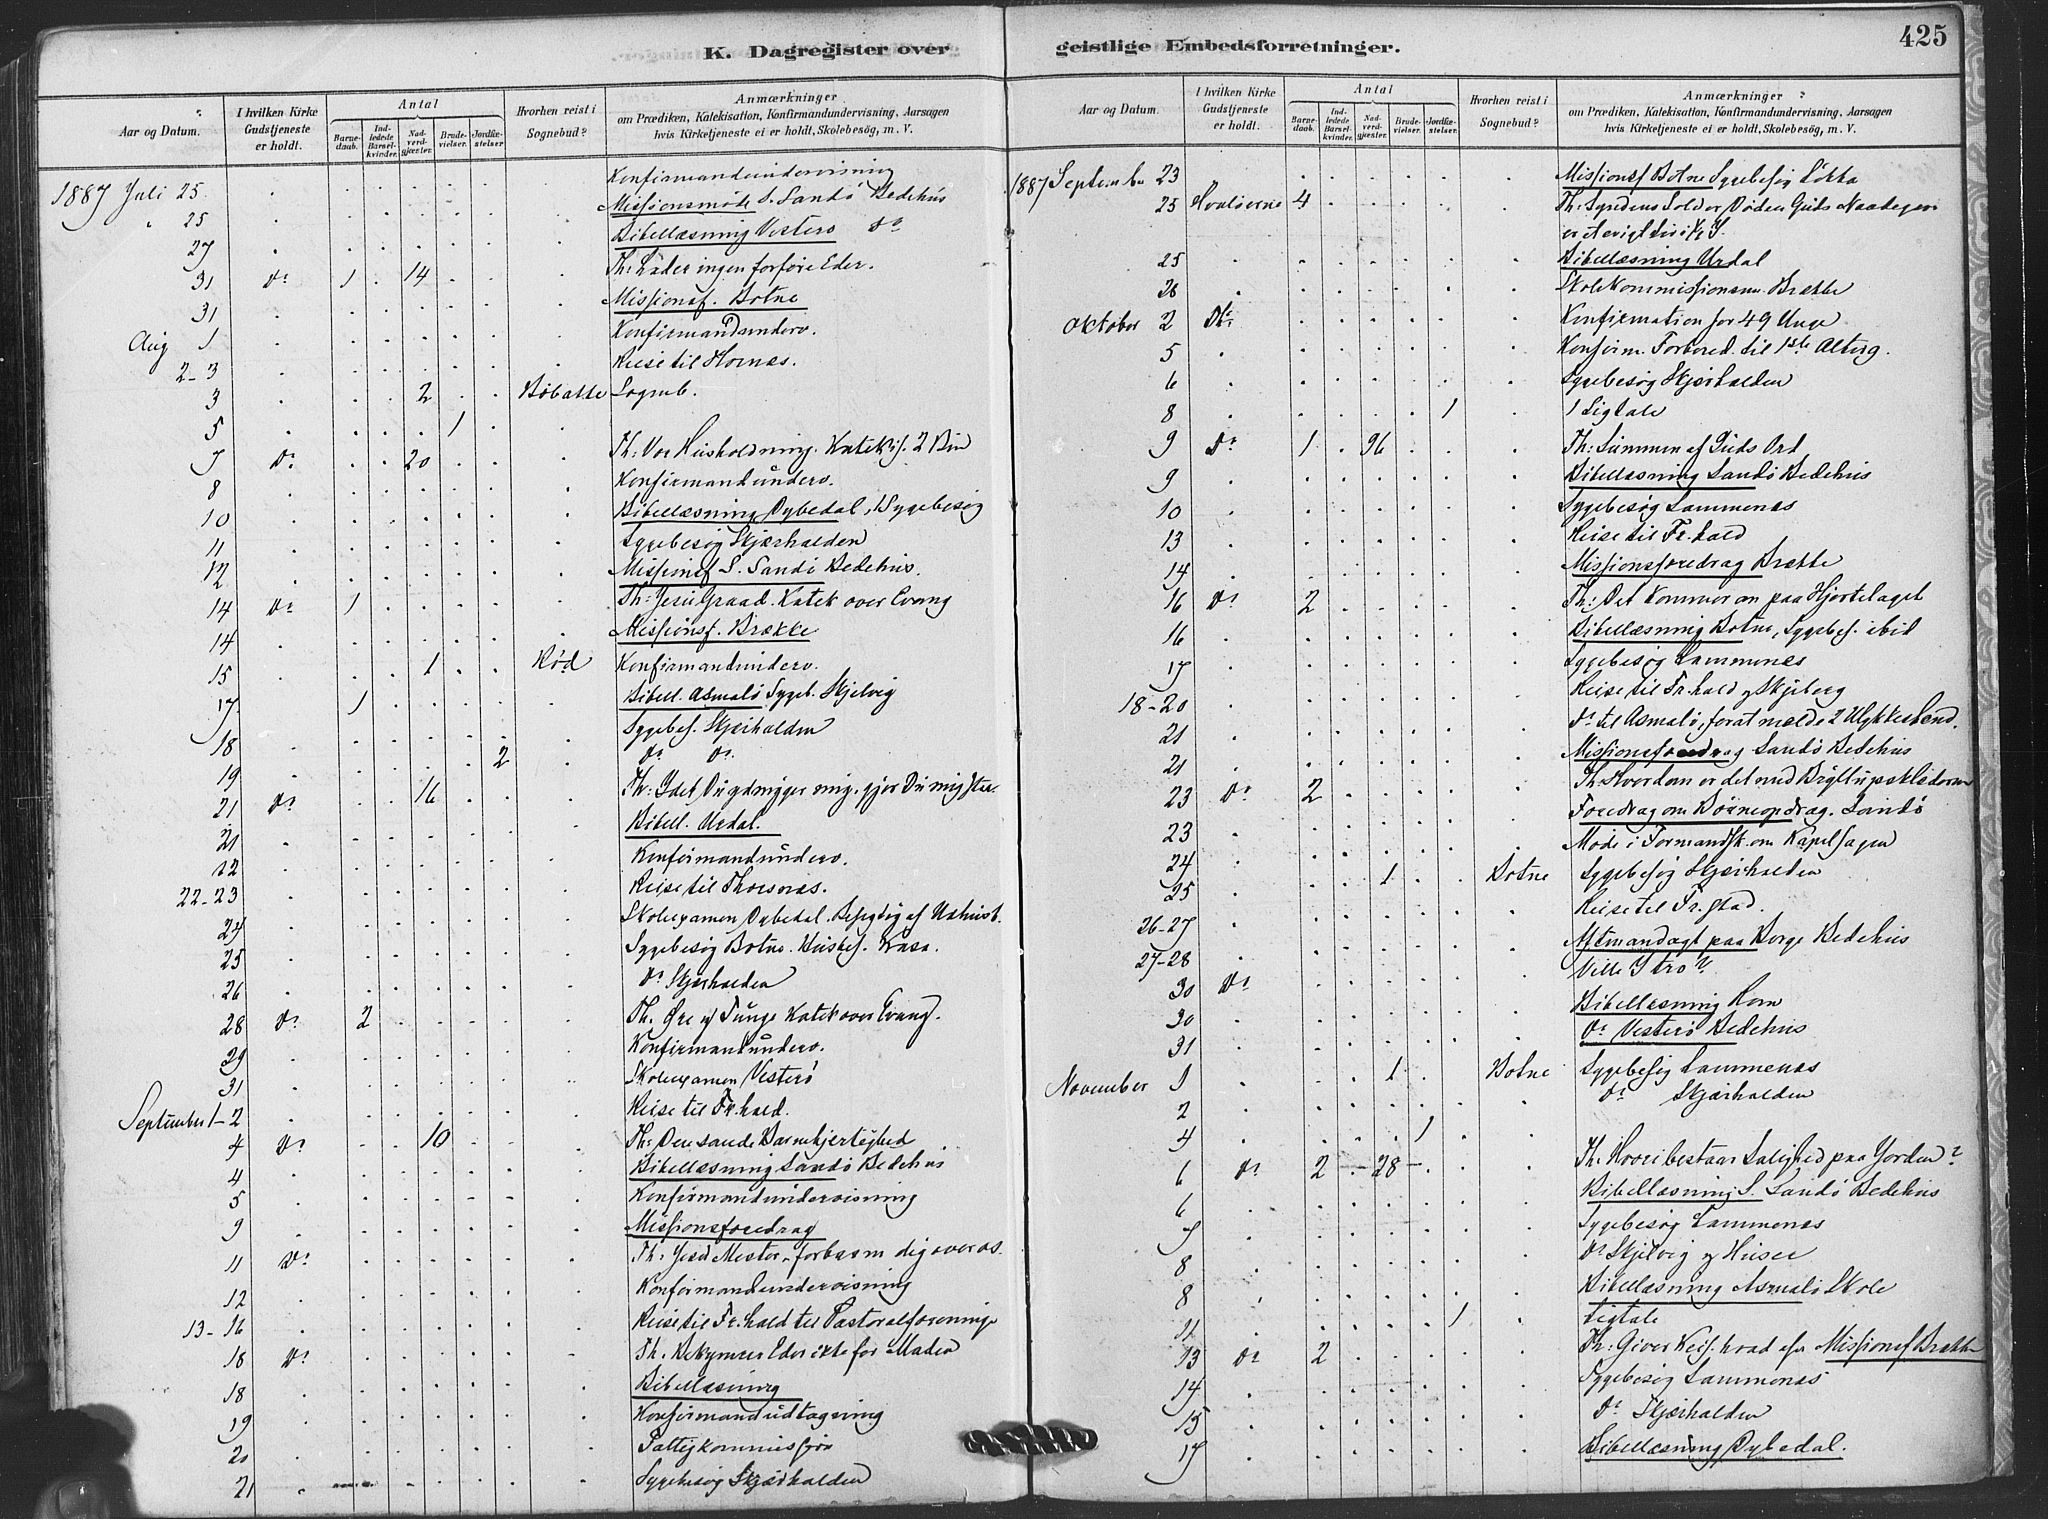 K. Dagregister over geistlige Embedsforretninger. 425
Aar og Datum. I hvilken Kirke Gudstjeneste er holdt. Antal Barnedaab. Indledede Barselkvinder. Nadverdgjæster. Brudevielser. Jordfæstelser. Hvorhen reist i Sognebud? Anmærkninger om Prædiken, Katekisation, Konfirmandundervisning, Aarsagen hvis Kirketjeneste ei er holdt, Skolebesøg, m. V.
1887 Juli 25 Konfirmandundervisning
" 25 Missionsmøde S. Sandö Bedehus
27 Bibellæsning Vesterö Do
31 Do 1 14 Th: Lader ingen forføre Eder.
31 Missionsf. Botne
Aug 1 Konfirmandunderv.
2-3 Reise til Hornæs.
3 2 Bøbakke Sogneb.
5 1
7 Do 20 Th: Vor Husholdning. Katekis. 2 Bön
8 Konfirmandunderv.
10 Bibellæsning Dybedal, 1 Sygebesøg
11 Sygebesøg Skjærhalden
12 Missionsf S. Sandö Bedehus.
14 Do 1 Th: Jesu Graad. Katek over Evang
14 Missionsf. Brække
15 1 Rød Konfirmandunderv.
17 1 Bibell. Asmalö Sygeb. Skjelvig
18 Sygebes. Skjærhalden
19 2 Do Do
21 Do 16 Th:
21 Bibell. Urdal.
22 Konfirmandunderv.
22-23 Reise til Thorsnæs.
24 Skoleexamen Dybedal.
25 Sygebesøg Botne. Husbes.
26 Do Skjærhalden
28 Do 2 Th. Øre og Tunge Katek over Evang.
29 Konfirmandunderv.
31 Skoleexamen Vesterö
September 1-2 Reise til Fr.hald.
4 Do 10 Th: Den sande Barmhjertighed
4 Bibellæsning Sandö Bedehus
5 Konfirmandundervisning
9 Missionsforedrag
11 Do Th: Jesu Mester, forbarm dig over os.
12 Konfirmandundervisning
13-16 Reise til Fr.hald til Pastoralforening
18 Do Th. Bekymrer Eder ikke for Maden
18 Bibellæsning
19 Konfirmandudtagning
20 Fattigkommission
21 Sygebesøg Skjærhalden
Aar og Datum. I hvilken Kirke Gudstjeneste er holdt. Antal Barnedaab. Indledede Barselkvinder. Nadverdgjæster. Brudevielser. Jordfæstelser. Hvorhen reist i Sognebud? Anmærkninger om Prædiken, Katekisation, Konfirmandundervisning, Aarsagen hvis Kirketjeneste ei er holdt, Skolebesøg, m. V.
1887 September 23 Missionsf Botne Sygebesøg Løkka
25 Hvaløerne 4 Th: Syndens Sold er Døden Guds Naadegave
er et evigt Liv i K. J.
25 Bibellæsning Urdal
28 Skolekommissionsm. Brække
Oktober 2 Do Konfirmation for 49 Unge
5 Konfirm. Forbered. til 1ste Alterg.
6 Sygebesøg Skjærhalden
8 1 1 Ligtale
9 Do 1 96 Th: Summen af Guds Ord
9 Bibellæsning Sandö Bedehus
10 Sygebesøg Lammenæs
13 Reise til Fr.hald
14 Missionsforedrag Brække
16 Do 2 Th: Det kommer an paa Hjertelaget
16 Bibellæsning Botne, Sygebes. ibid
17 Sygebesøg Lammenæs
18-20 Reise til Fr.hald og Skjeberg
21 Do til Asmalö, for at melde 2 Ulykkeshend.
21 Missionsforedrag Sandö Bedehus
23 Do 2 Th: Hvordan er det med Bryllupsklæderne
23 Foredrag om Børneopdrag. Sandö
24 Møde i Formandsk. om Kapelsagen
25 1 Botne Sygebesøg Skjærhalden
26-27 Reise til Fr.stad.
27-28 Aftmandagt paa Borge Bedehus
30 Do Ville I tro?
30 Bibellæsning Horn
31 Do Vesterö Bedehus
November 1 1 Botne Sygebesøg Lammenæs
2 Do Skjærhalden
4 1
6 Do 2 28 Th. Hvori bestaar Salighed paa Jorden?
6 Bibellæsning S. Sandö Bedehus
7 Sygebesøg Lammenæs
8 Do Skjelvig og Huser
8 Bibellæsning Asmalö Skole
11 1 Ligtale
13 Do 2 Th: Giver Keis. hvad Missionsf Brække
14 Sygebesøg Lammenæs
15 Do Skjærhalden
17 Bibellæsning Dybedal.